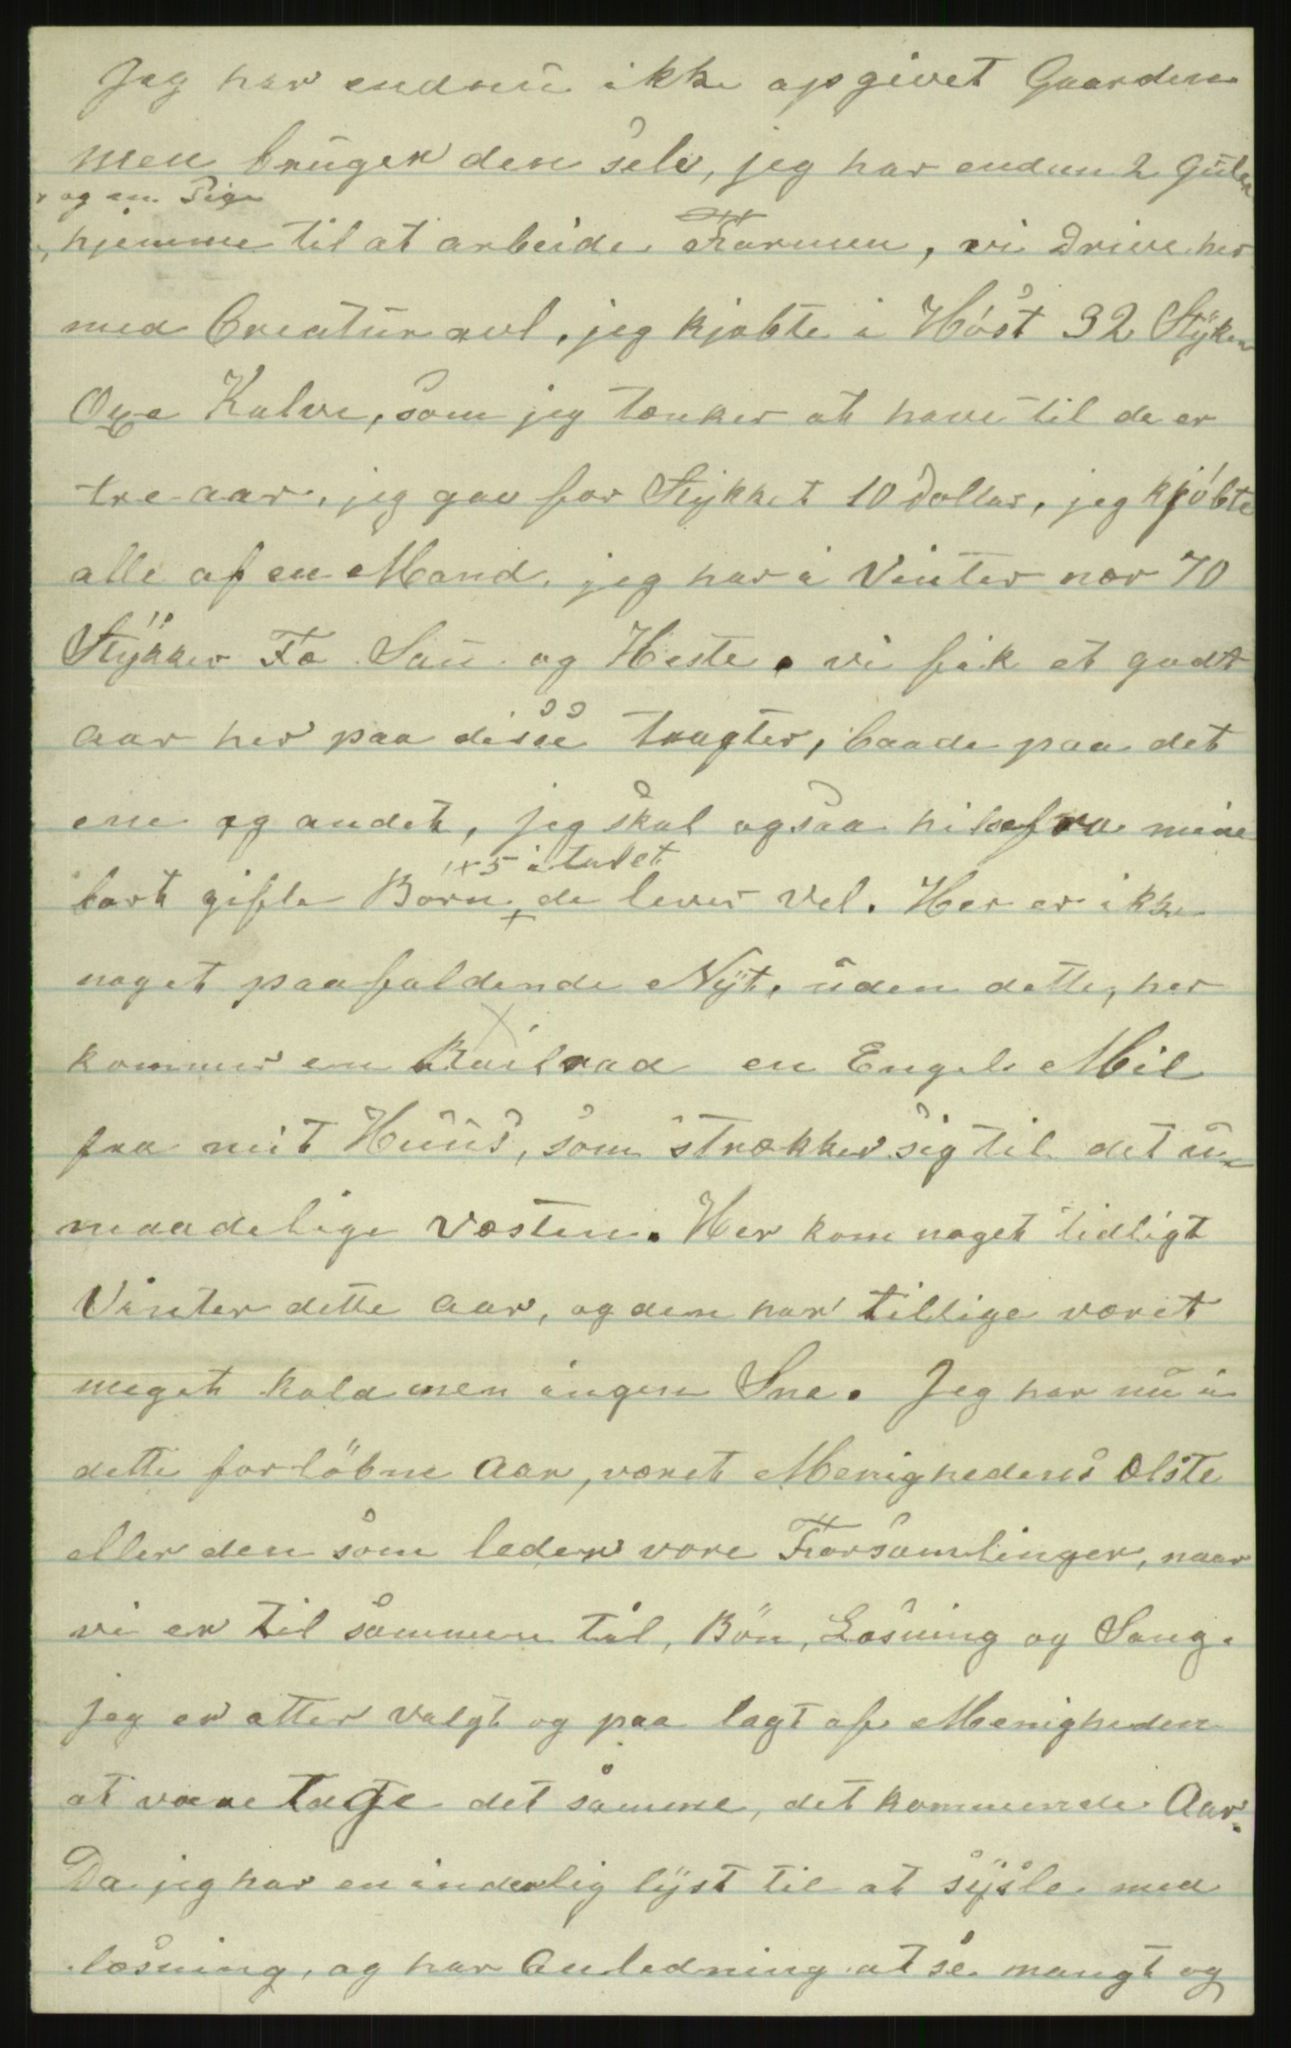 Jeg har endnu ikke opgivet Gaarden
men bruger den selv, jeg har endnu 2 Guter
og en Pige
hjemme til at arbeide Farmen, vi Drive her
med Creatur avl, jeg kjøbte i Høst 32 Stÿker
Oxe Kalve, som jeg tænker at have til de er
tre aar, jeg gav for Stykket 10 Dollar, jeg kjøbte
alle af en Mand, jeg har i Vinter nær 70
Stÿkker Fæ Sau og Heste. vi fik et godt
aar her paa disse tragter, baade paa det
ene og andet, jeg skal ogsaa hilse fra mine
+ 5 i talet
bort gifte Børn + de lever vel. Her er ikke
noget paafaldende Nÿt, uden dette, her
kommer en Railroad en Engels Mil
fra mit Huus, som strækker sig til det u-
maadelige Væsten. Her kom noget tidligt
Vinter dette Aar, og den har tillige været
meget kold men ingen Sne. Jeg har nu i
dette forløbne Aar, været Menighedens Ælste
eller den som leder vore Forsamlinger, naar
vi er til sammen til, Bön, Læsning og Sang.
jeg er atter valgt og paa lagt af Menigheden
at vare tage det samme, det kommende Aar.
Da jeg har en inderlig lÿst til at sÿsle med
læsning, og har Anledning at se mangt og